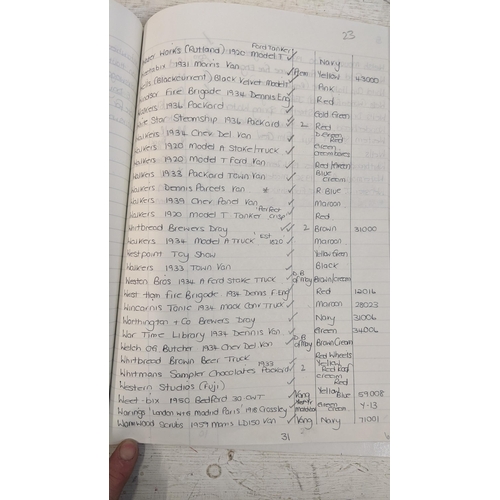 23
Ford Tanker
Water Works (Rutland) 1920 Model T ✓ Navy
Weetabix 1931 Morris Van Yellow 43000
Wells (Blackcurrent) Black Velvet Model T ✓ Pink
Windsor Fire Brigade 1934 Dennis Eng ✓ Red
Walkers 1936 Packard ✓ Gold Green
White Star Steamship 1936 Packard ✓ 2 Red
Walkers 1934 Chev Del. Van ✓ D. Green Red
Walkers 1920 Model A Stake/Truck ✓ Green Cream
Walkers 1920 Model T Ford Van ✓ Red/Green
Walkers 1933 Packard Town Van ✓ Blue Cream
Walkers Dennis Parcels Van * ✓ R. Blue
Walkers 1939 Chev Panel Van ✓ Maroon
Walkers 1920 Model T Tanker 'Perfect Crisp' ✓ Red
Whitbread Brewers Dray ✓✓ 2 Brown 31000
Walkers 1934 Model A Truck 'Est 1820 ✓ Maroon
Westpoint Toy Show ✓ Yellow Green
Walkers 1933 Town Van ✓ Black
Weston Bros 1934 A Ford Stake Truck ✓ Brown/Cream
West Ham Fire Brigade 1934 Dennis F. Eng ✓ Red 12016
Wincarnis Tonic 1934 Mack Canv Truck ✓ Maroon 28023
Worthington + Co Brewers Dray ✓ Navy 31006
War Time Library 1934 Dennis Van ✓ Green 34006
Welch OG Butcher 1934 Chev Del Van ✓ Brown Cream
Whitbread Brown Beer Truck ✓ Red Wheels
Whitmans Sampler Chocolates 1933 Packard ✓ 2 Yellow Red Roof
Western Studios (Fuji) ✓ Cream Red
Weet-bix 1950 Bedford 30 CWT ✓ Vang Yellow Blue 59008
Warings 'London with Madrid Paris' 1918 Crossley ✓ Green Cream Y-13
Wormwood Scrubs 1959 Morris LD150 Van ✓ Vang Navy 71001
31